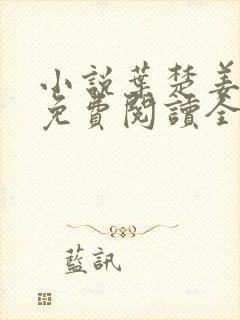 小說葉楚姜
免費閱讀全
藍訊